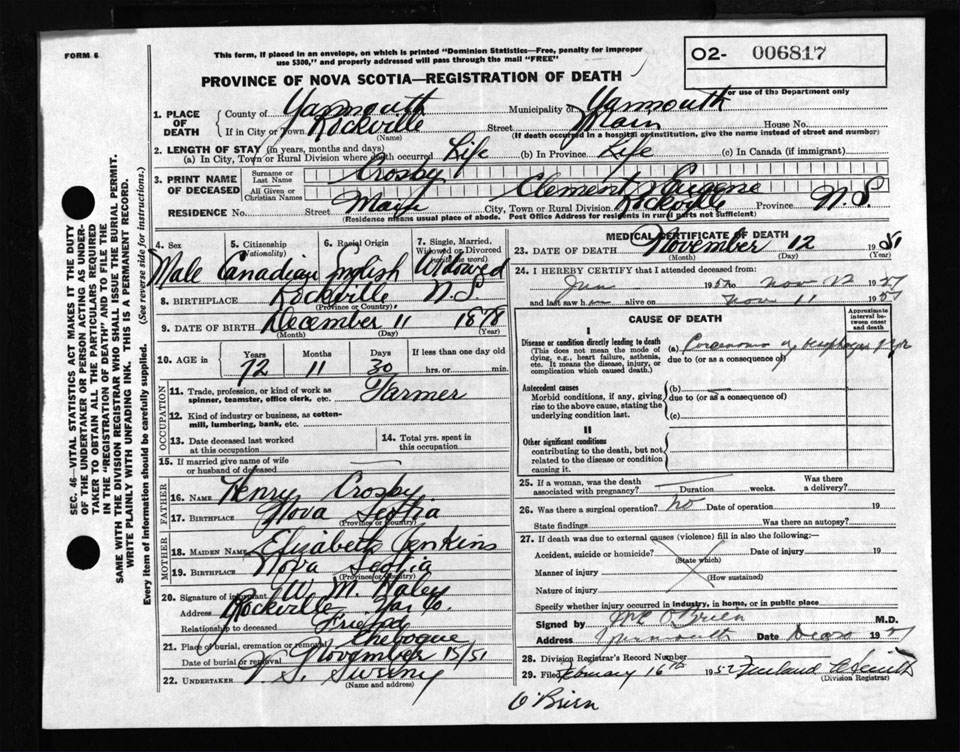 FORM 6
This form, if placed in an envelope, on which is printed "Dominion Statistics—Free, penalty for improper
use $300," and properly addressed will pass through the mail "FREE"
O2- 006817
PROVINCE OF NOVA SCOTIA—REGISTRATION OF DEATH
For use of the Department only
1. PLACE OF DEATH
County of Yarmouth Municipality of Yarmouth
If in City or Town Rockville Street Main House No.
(Name) (If death occurred in a hospital or institution, give the name instead of street and number)
2. LENGTH OF STAY (in years, months and days)
(a) In City, Town or Rural Division where death occurred Life (b) In Province Life (c) In Canada (if immigrant)
3. PRINT NAME OF DECEASED
Surname or Last Name Crosby
All Given or Christian Names Clement Eugene
RESIDENCE No. Street Main City, Town or Rural Division Rockville Province N.S.
(Residence means usual place of abode. Post Office Address for residents in rural parts not sufficient)
4. Sex 5. Citizenship (Nationality) 6. Racial Origin 7. Single, Married, Widowed or Divorced (write the word)
Male Canadian English Widowed
8. BIRTHPLACE Rockville N.S.
(Province or Country)
9. DATE OF BIRTH December 11 1878
(Month) (Day) (Year)
10. AGE in Years Months Days If less than one day old
72 11 30 hrs. or min.
OCCUPATION
11. Trade, profession, or kind of work as
spinner, teamster, office clerk, etc. Farmer
12. Kind of industry or business, as cotton-
mill, lumbering, bank, etc.
13. Date deceased last worked at this occupation
14. Total yrs. spent in this occupation
15. If married give name of wife
or husband of deceased
FATHER
16. NAME Henry Crosby
17. BIRTHPLACE Nova Scotia
(Province or Country)
MOTHER
18. MAIDEN NAME Elizabeth Jenkins
19. BIRTHPLACE Nova Scotia
(Province or Country)
20. Signature of informant W. M. Haley
Address Rockville Yar Co.
Relationship to deceased Friend
21. Place of burial, cremation or removal Chebogue
Date of burial or removal November 15/51
22. UNDERTAKER V. S. Sweeny
(Name and address)
MEDICAL CERTIFICATE OF DEATH
23. DATE OF DEATH November 12 1951
(Month) (Day) (Year)
24. I HEREBY CERTIFY that I attended deceased from:
Jan 19 to Nov 12 19
and last saw h alive on Nov 11 19
CAUSE OF DEATH
Approximate interval between onset and death
I
Disease or condition directly leading to death
(This does not mean the mode of
dying, e.g., heart failure, asthenia,
etc. It means the disease, injury, or
complication which caused death.)
(a) Carcinoma of
due to (or as a consequence of)
Antecedent causes
Morbid conditions, if any, giving
rise to the above cause, stating the
underlying condition last.
(b)
due to (or as a consequence of)
(c)
II
Other significant conditions
contributing to the death, but not
related to the disease or condition
causing it.
25. If a woman, was the death
associated with pregnancy? Duration weeks. Was there a delivery?
26. Was there a surgical operation? no Date of operation 19
State findings Was there an autopsy?
27. If death was due to external causes (violence) fill in also the following:—
Accident, suicide or homicide? Date of injury 19
(State which)
Manner of injury
(How sustained)
Nature of injury
Specify whether injury occurred in industry, in home, or in public place
Signed by O'Brien M.D.
Address Yarmouth Date 19
28. Division Registrar's Record Number
29. Filed February 16th 1952
(Division Registrar)
O'Brien
SEC. 46—VITAL STATISTICS ACT MAKES IT THE DUTY
OF THE UNDERTAKER OR PERSON ACTING AS UNDER-
TAKER TO OBTAIN ALL THE PARTICULARS REQUIRED
IN THE "REGISTRATION OF DEATH" AND TO FILE THE
SAME WITH THE DIVISION REGISTRAR WHO SHALL ISSUE THE BURIAL PERMIT.
WRITE PLAINLY WITH UNFADING INK. THIS IS A PERMANENT RECORD.
Every item of information should be carefully supplied. (See reverse side for instructions.)